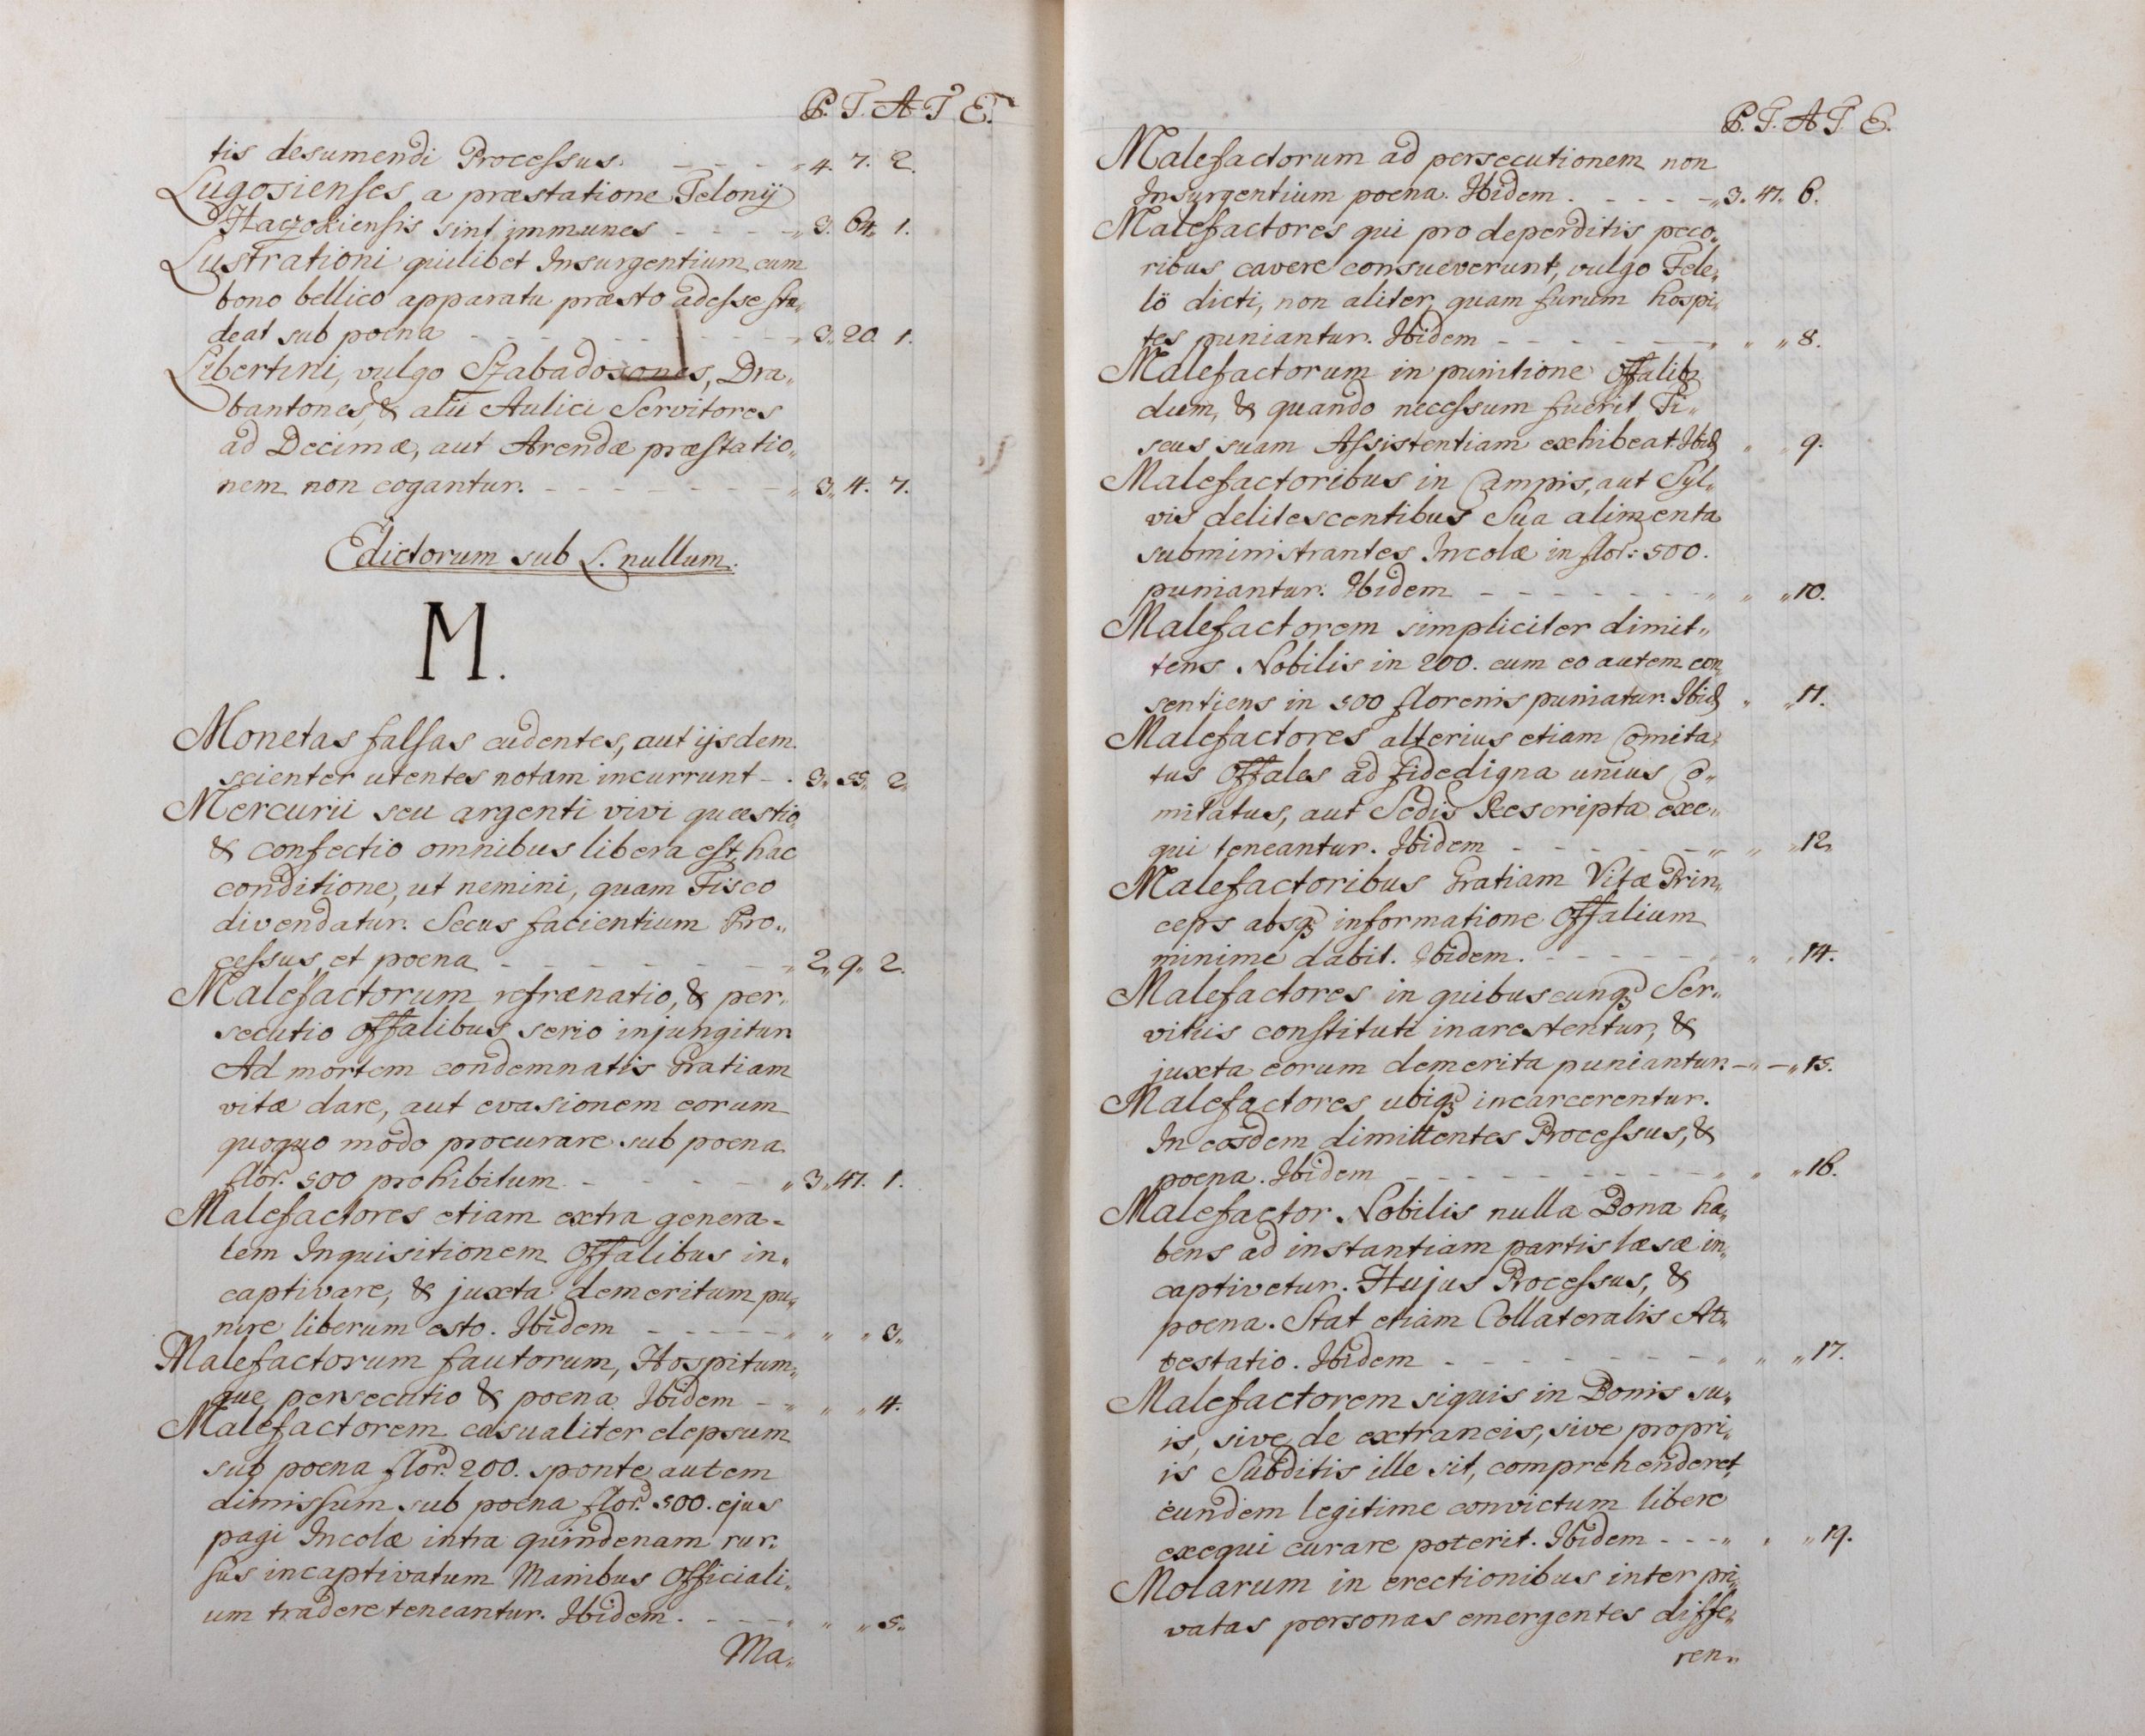 P. T. A T E.
tis desumendi Processus. - - - „ 4. 7. 2.
Lugosienses a præstatione Telonij
Haczokiensis sint immunes - - - - „ 3. 64. 1.
Lustrationi quilibet Insurgentium cum
bono bellico apparatu præsto adesse stu„
deat sub poena - - - - - - - „ 3. 20. 1.
Libertini, vulgo Szabadosones, Dra„
bantones, & alii Aulici Servitores
ad Decimæ, aut Arendæ præstatio„
nem non cogantur. - - - - - - „ 3. 4. 7.
Edictorum sub L. nullum.
M.
Monetas falsas cudentes, aut ijsdem
scienter utentes notam incurrunt - . 3. 55. 2.
Mercurii seu argenti vivi quæstio
& confectio omnibus libera est, hac
conditione, ut nemini, quam Fisco
divendatur. Secus facientium Pro„
cessus, et poena - - - - - - - „ 2„ 9„ 2.
Malefactorum refrænatio, & per„
secutio offalibus serio injungitur.
Ad mortem condemnatis Gratiam
vitæ dare, aut evasionem eorum
quoquo modo procurare sub poena
flor. 500 prohibitum - - - - - „ 3„ 47. 1.
Malefactores etiam extra genera-
lem Inquisitionem Offalibus in„
captivare, & juxta demeritum pu„
nire liberum esto. Ibidem - - - - - „ „ „ 3„
Malefactorum fautorum, Hospitum„
que persecutio & poena. Ibidem - „ „ „ 4.
Malefactorem casualiter elepsum
sub poena flor. 200. sponte autem
dimissum sub poena flor. 500. ejus
pagi Incolæ intra quindenam rur„
sus incaptivatum Manibus Officiali„
um tradere teneantur. Ibidem. - - - „ „ „ 5„
Ma„
P. T. A T. E.
Malefactorum ad persecutionem non
Insurgentium poena. Ibidem. - - - - „ 3. 47. 6.
Malefactores qui pro deperditis peco„
ribus cavere consueverunt, vulgo Fele„
lö dicti, non aliter, quam furum hospi„
tes puniantur. Ibidem - - - - - - „ „ „ 8.
Malefactorum in punitione offalib9
dum, & quando necessum fuerit Fi„
scus suam Assistentiam exhibeat. Ibid „ „ 9.
Malefactoribus in Campis, aut Syl„
vis delitescentibus Sua alimenta
subministrantes Incolæ in flor: 500.
puniantur. Ibidem - - - - - - - „ „ „ 10.
Malefactorem simpliciter dimit„
tens Nobilis in 200. cum eo autem con
sentiens in 500 florenis puniatur. Ibid „ „ 11.
Malefactores alterius etiam Comita„
tus Offales ad fidedigna unius Co„
mitatus, aut Sedis Rescripta exe„
qui teneantur. Ibidem - - - - - - „ „ „ 12„
Malefactoribus Gratiam Vitæ Prin„
ceps absq3 informatione Offalium
minime dabit. Ibidem. - - - - - - „ „ 14.
Malefactores in quibuscunq3 Ser„
vitiis constituti inarestentur, &
juxta eorum demerita puniantur. - „ - „ 15.
Malefactores ubiq3 incarcerentur.
In eosdem dimittentes Processus, &
poena. Ibidem - - - - - - - - - „ „ „ 16.
Malefactor Nobilis nulla Bona ha„
bens ad instantiam partis læsæ in„
captivetur. Hujus Processus, &
poena. Stat etiam Collateralis At„
testatio. Ibidem - - - - - - - - „ „ „ 17.
Malefactorem siquis in Bonis su„
is, sive de extraneis, sive propri„
is Subditis ille sit, comprehenderet,
eundem legitime convictum libere
exequi curare poterit. Ibidem - - - „ „ „ 19.
Molarum in erectionibus inter pri„
vatas personas emergentes diffe„
ren„